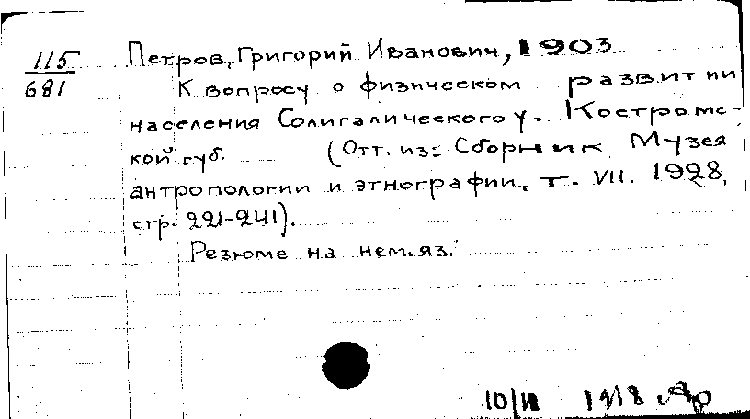 115
681
Петров, Григорий Иванович, 1903
К вопросу о физическом развитии
населения Солигалического у. Костромс-
кой губ. (Отт. из: Сборник Музея
антропологии и этнографии. т. VII. 1928,
стр. 221-241).
Резюме на нем.яз.
10/II